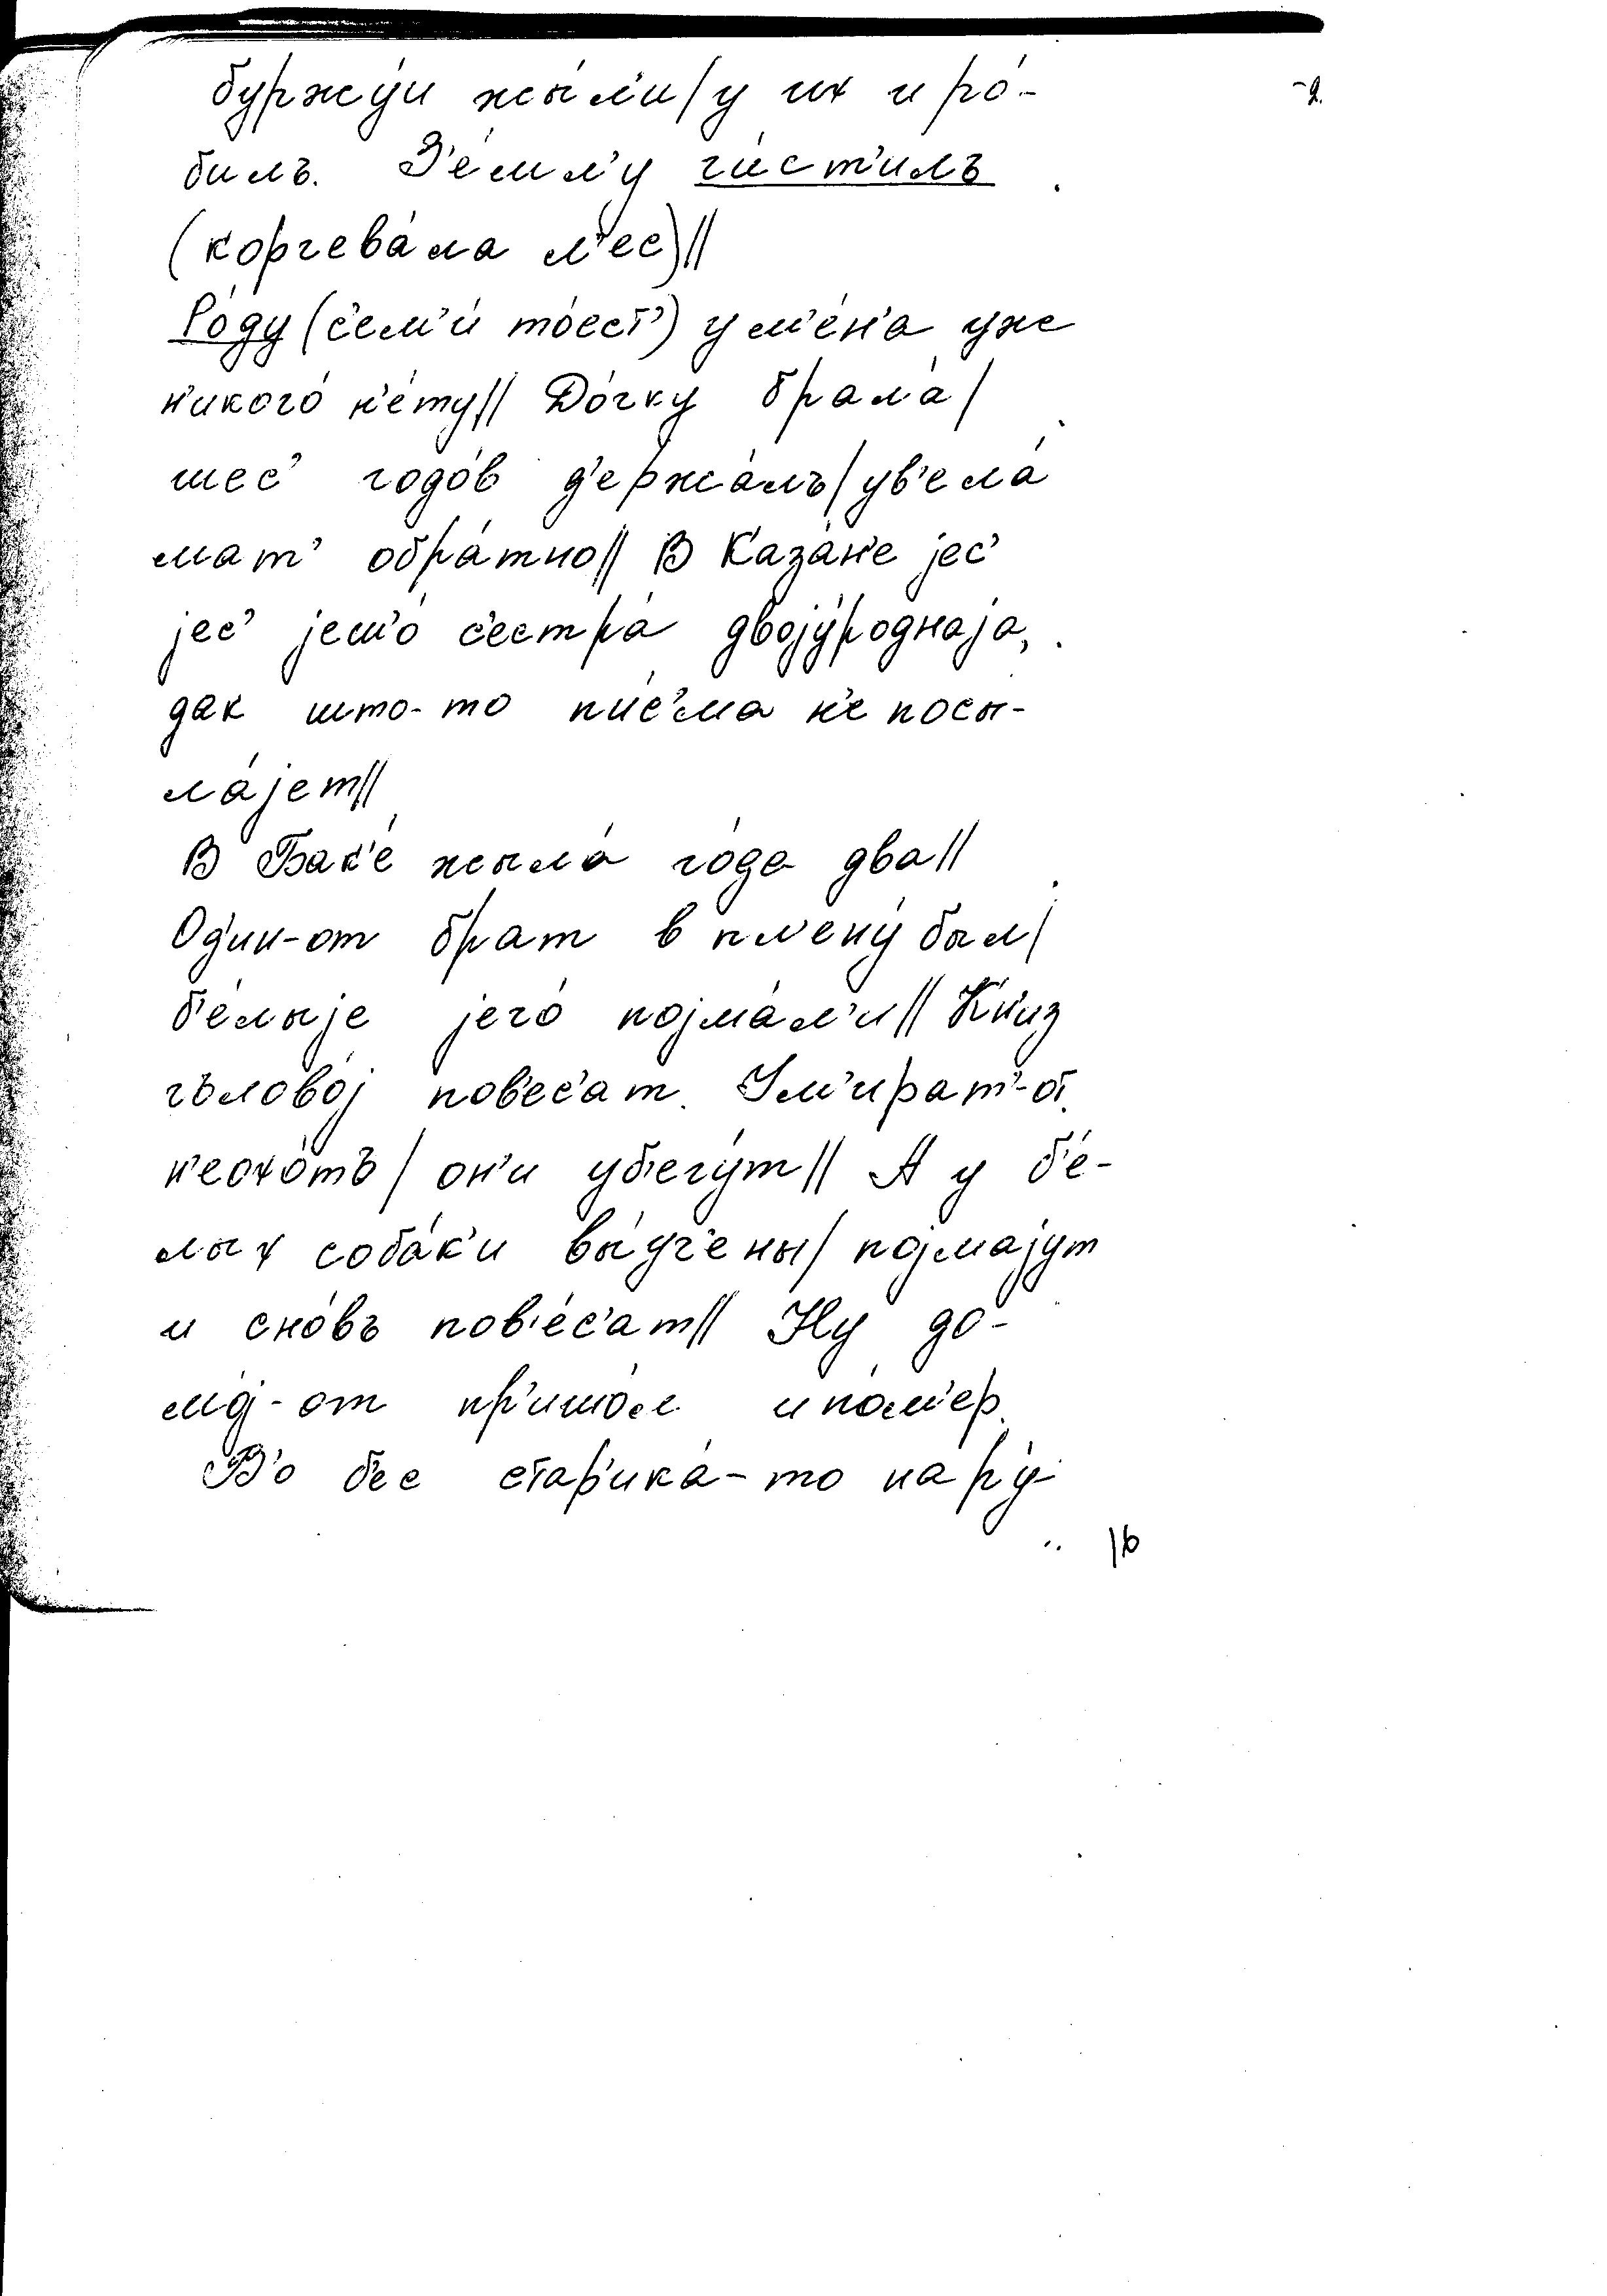 буржу́и жы́л'и/у их и ро́-
билъ. З'е́мл'у чи́ст'илъ
(корчева́ла л'ес)//
Ро́ду (с'ем'и́ то́ест') у м'ен'а́ уже
н'икого́ н'е́ту// До́чку брала́/
шес' годо́в д'ержа́лъ/ув'ела́
мат' обра́тно// В Каза́н'е jес'
jес' jеш'о́ с'естра́ двоjу́роднаjа,
дак што-то пи́с'ма н'е посы-
ла́jет//
В Бак'е́ жыла́ го́да два//
Од'ин-от брат в пл'ену́ был/
б'е́лыjе jего́ поjма́л'и// Кн'из
гълово́j пов'ес'ат. Ум'ират'-от
н'еохо́тъ/ он'и убегу́т// А у б'е́-
лых соба́к'и вы́уч'ены/ поjмаjут
и сно́въ пов'е́с'ат// Ну до-
мо́j-от пр'ишо́л и по́м'ер.
В'о б'ес стар'ика́-то нару́
16